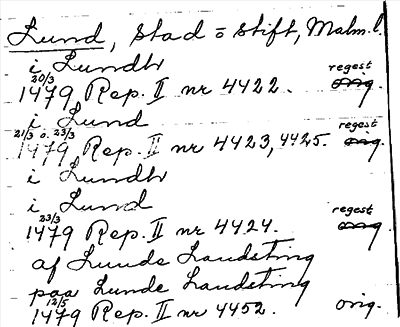 Lund, Stad o Stift, Malm. l.
i Lundh
20/3 regest
1479 Rep. II nr 4422. orig.
i Lund
21/3 o. 23/3 regest
1479 Rep. II nr 4423, 4425. orig.
i Lundh
i Lund
23/3 regest
1479 Rep. II nr 4424. orig.
af Lunde Landsting
paa Lunde Landsting
12/5
1479 Rep. II nr 4452. orig.